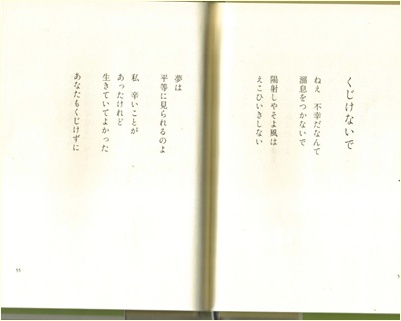 くじけないで
ねえ　不幸だなんて
溜息をつかないで
陽射しやそよ風は
えこひいきしない
夢は
平等に見られるのよ
私　辛いことが
あったけれど
生きていてよかった
あなたもくじけずに
55